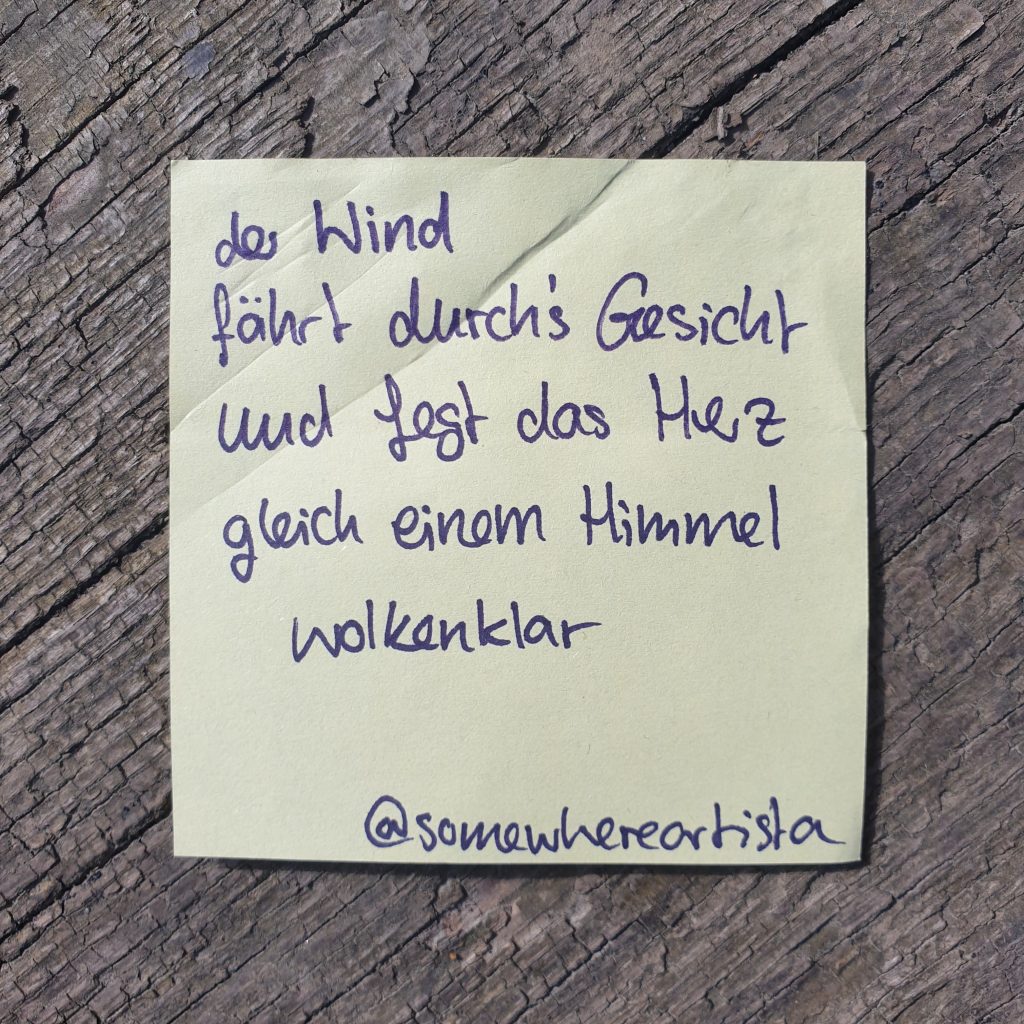 der Wind
fährt durch's Gesicht
und fegt das Herz
gleich einem Himmel
wolkenklar
@somewhereartista